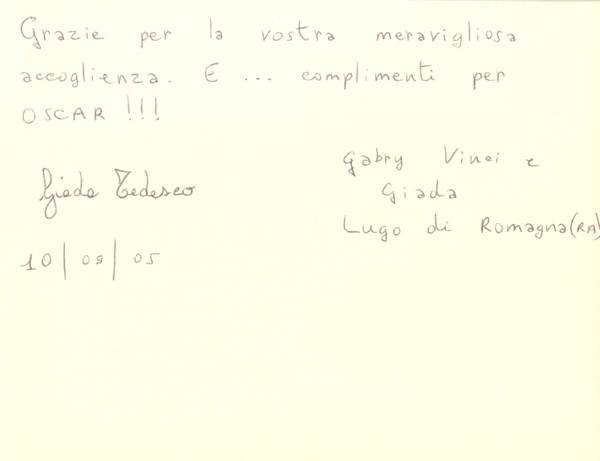 Grazie per la vostra meravigliosa
accoglienza. E ... complimenti per
OSCAR !!!
Gabry Vinci e
Giada
Lugo di Romagna (RA)
Giada Tedesco
10/09/05